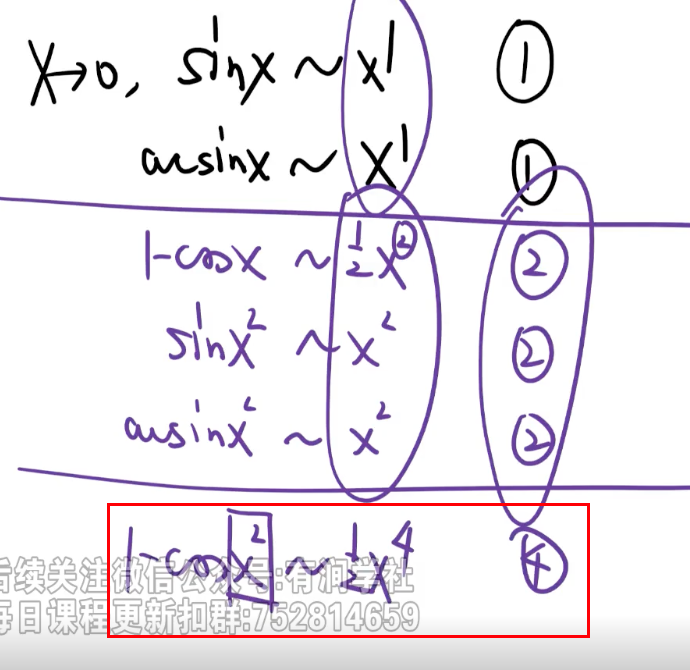 x→0, sinx ~ x¹ ①
arcsinx ~ x¹ ①
1-cosx ~ ½x² ②
sinx² ~ x² ②
arcsinx² ~ x² ②
1-cosx² ~ ½x⁴ ④
后续关注微信公众号:有润学社
每日课程更新扣群:752814659